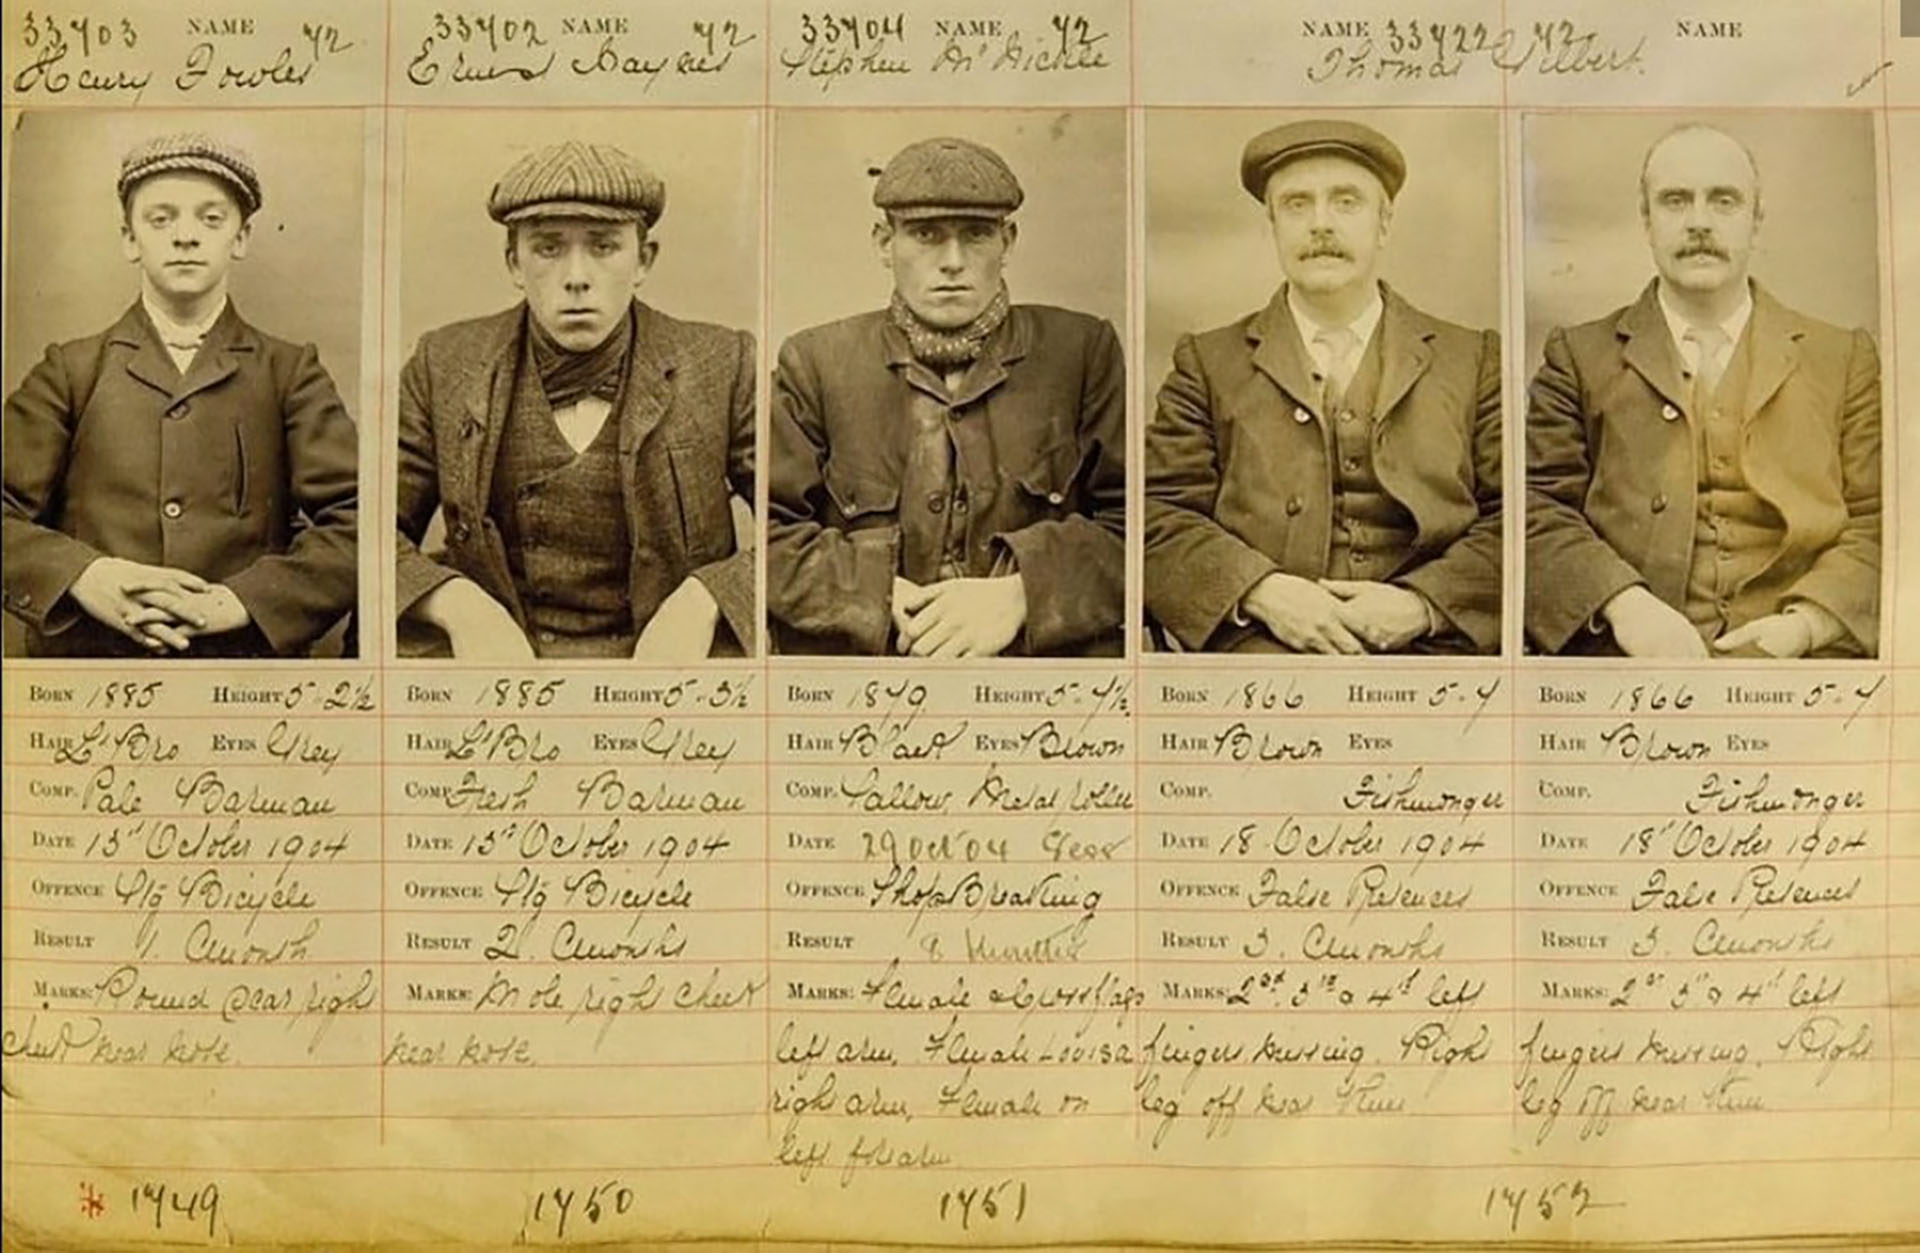 33703 NAME 72
Henry Fowler
33702 NAME 72
Ernest Haynes
33704 NAME 72
Stephen Mc Nickle
NAME 33722 72 NAME
Thomas Gilbert
BORN 1885 HEIGHT 5-2½
HAIR L'Bro EYES Grey
COMP. Pale Barman
DATE 13th October 1904
OFFENCE Stg Bicycle
RESULT 1. Cmonth
MARKS: Round scar right
cheek near nose.
1749
BORN 1885 HEIGHT 5-3½
HAIR L'Bro EYES Grey
COMP. Fresh Barman
DATE 13th October 1904
OFFENCE Stg Bicycle
RESULT 2. Cmonths
MARKS: Mole right cheek
near nose.
1750
BORN 1879 HEIGHT 5-7½
HAIR Black EYES Brown
COMP. Sallow, Metal roller
DATE 29 Oct 04
OFFENCE Shop Breaking
RESULT months
MARKS: Female & Cross flags
left arm, Female Louisa
right arm, Female on
left forearm
1751
BORN 1866 HEIGHT 5-7
HAIR Brown EYES
COMP. Fishmonger
DATE 18 October 1904
OFFENCE False Pretences
RESULT 3. Cmonths
MARKS: 2nd 3rd & 4th left
fingers missing. Right
leg off near knee
BORN 1866 HEIGHT 5-7
HAIR Brown EYES
COMP. Fishmonger
DATE 18th October 1904
OFFENCE False Pretences
RESULT 3. Cmonths
MARKS: 2nd 3rd & 4th left
fingers missing. Right
leg off near knee
1752